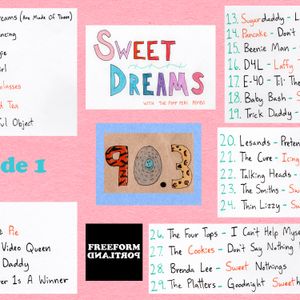 reams (Are Made Of These)
ncing
irl
olasses
d Tea
ful Object
SWEET
DREAMS
WITH THE
13. Sugardaddy - L
14. Pancake - Don't
15. Beenie Man -
16. D4L - Laffy T
17. E-40 - T1: The
18. Baby Bash - S
19. Trick Daddy -
de 1
90.3
20. Lesands - Preten
21. The Cure - Icing
22. Talking Heads -
23. The Smiths - Swe
24. Thin Lizzy - Sw
e Pie
Video Queen
Daddy
er Is A Winner
FREEFORM
PORTLAND
26. The Four Tops - I Can't Help Myse
27. The Cookies - Don't Say Nothing
28. Brenda Lee - Sweet Nothings
29. The Platters - Goodnight Sweeth